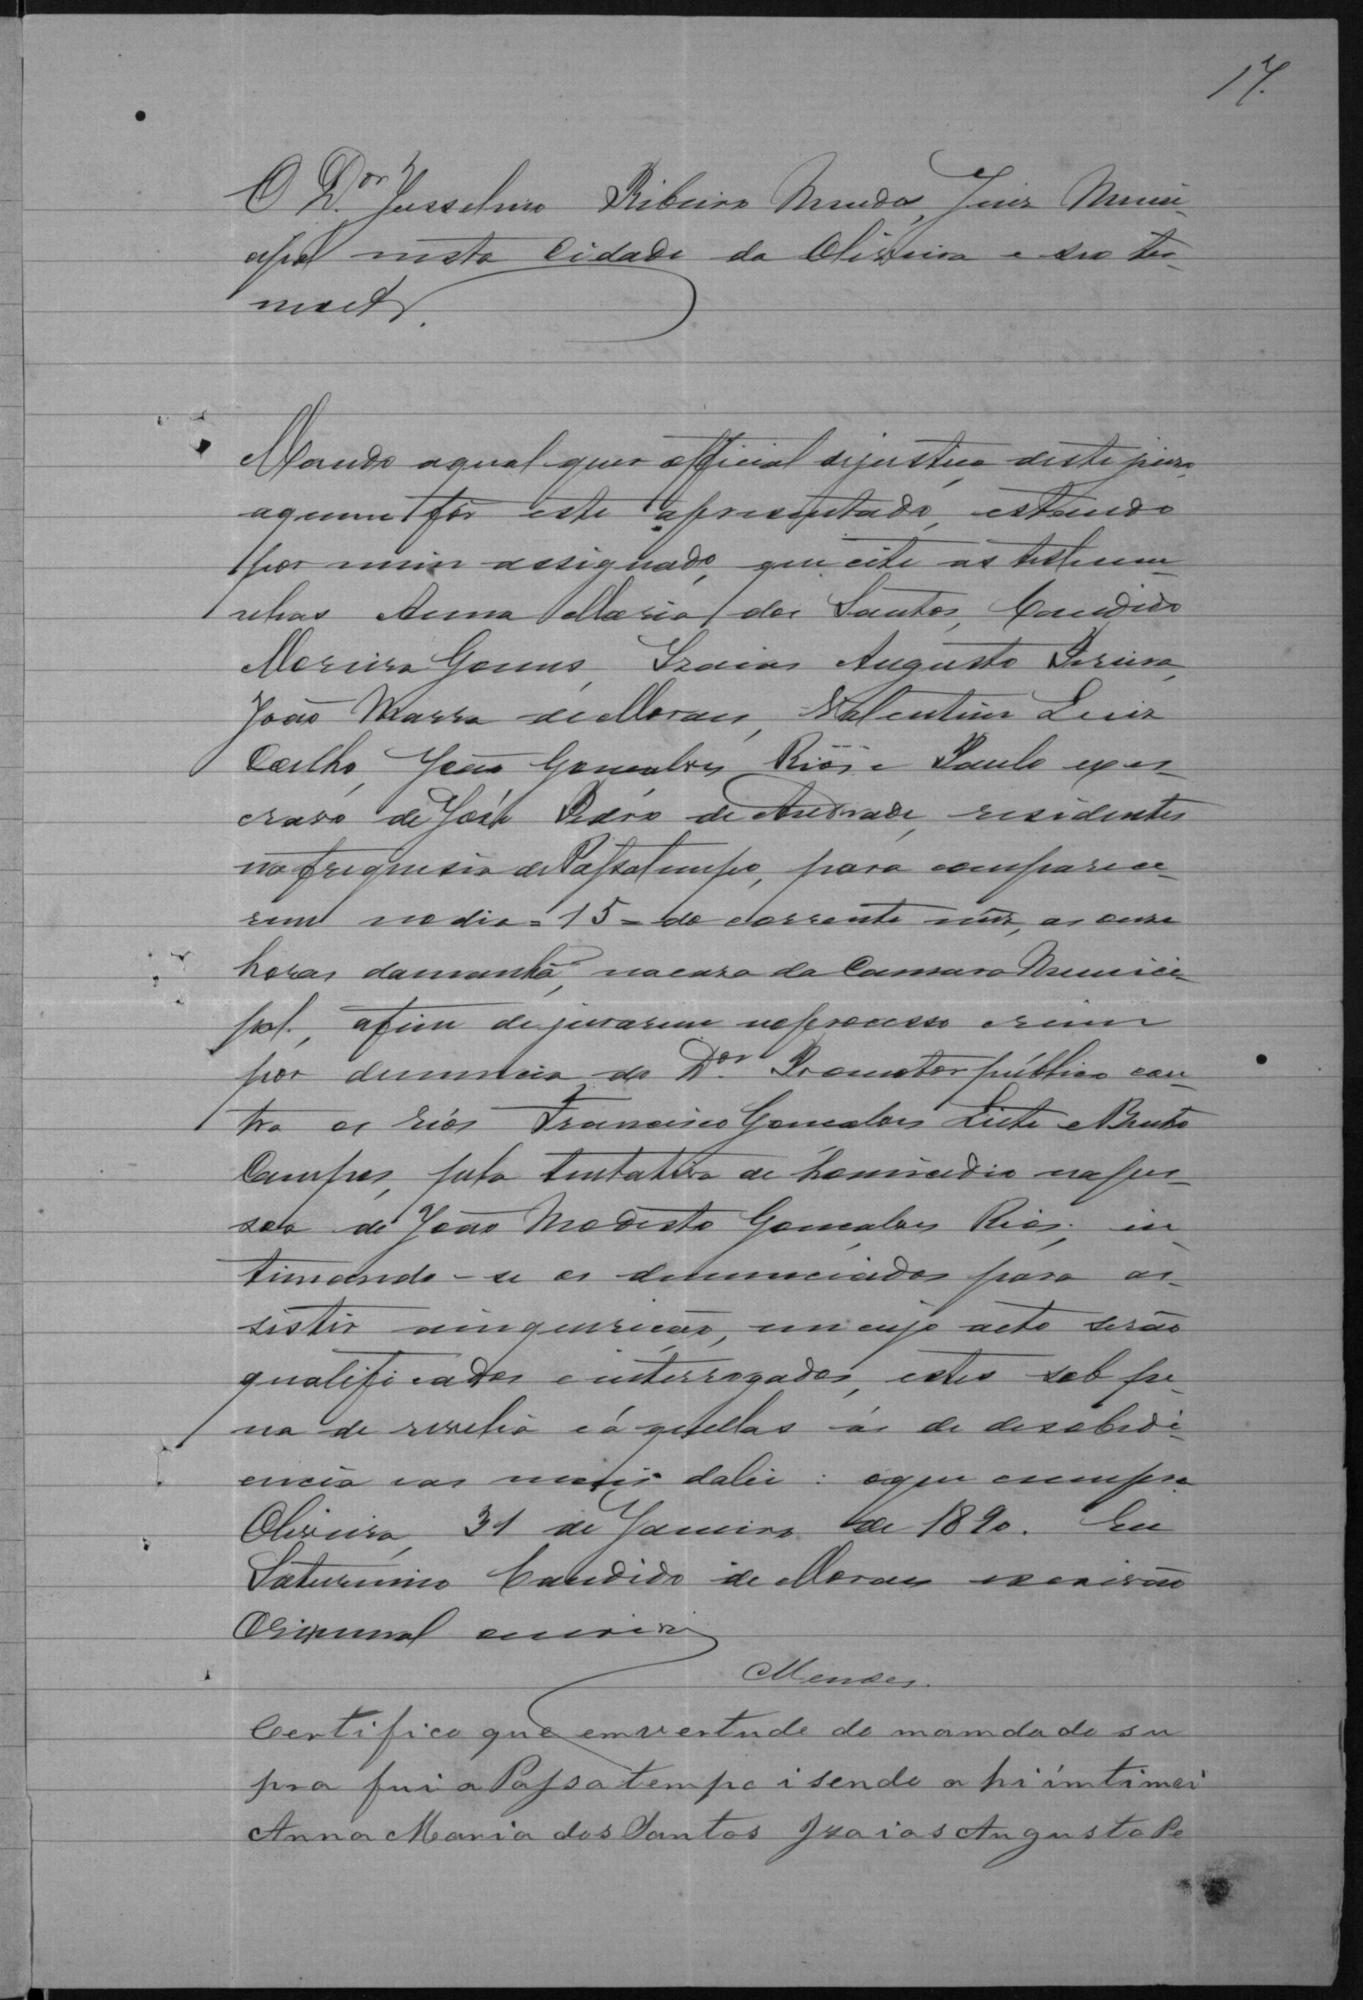 17.
O D.or Jusselino Ribeiro Mendes, Juiz Muni-
cipal nesta Cidade da Oliveira e seo ter-
mo etc.
Mando aqual quer official dejustiça deste juizo
aquem fôr este apresentado, estando
por mim assignado, que cite as testemu-
nhas Anna Maria dos Santos, Candido
Moreira Gomes, Izaias Augusto Pereira,
João Marra de Moraes, Valentim Luiz
Coelho, João Gonçalves Rios e Paulo ex es-
cravo de José Pedro de Andrade, residentes
na freguesia de Passatempo, para comparece-
rem no dia = 15 = do corrente mez, as onze
horas damanhã, nacaza da Camara Munici-
pal, afim de jurarem noprocesso crime
por denuncia do D.or Promotor público con-
tra os réos Francisco Gonçalves Leite e Bento
Campos, pela tentativa de homicidio naper-
soa de João Modesto Gonçalves Rios; in-
timando-se os denunciados para as-
sistir ainquirição, em cujo acto serão
qualificados e interrogados, estes sob pe-
na de revelia e áquellas ás de desobedi-
encia eas mais dalei: oque cumpra.
Oliveira, 31 de Janeiro de 1890. Eu
Saturnino Candido de Moraes escrivão
Criminal escrivi
Mendes.
Certifico que emvertude do mamdado su
pra fui a Passatempo i sendo ahi imtimei
Anna Maria dos Santos Izaias Augusto Pe